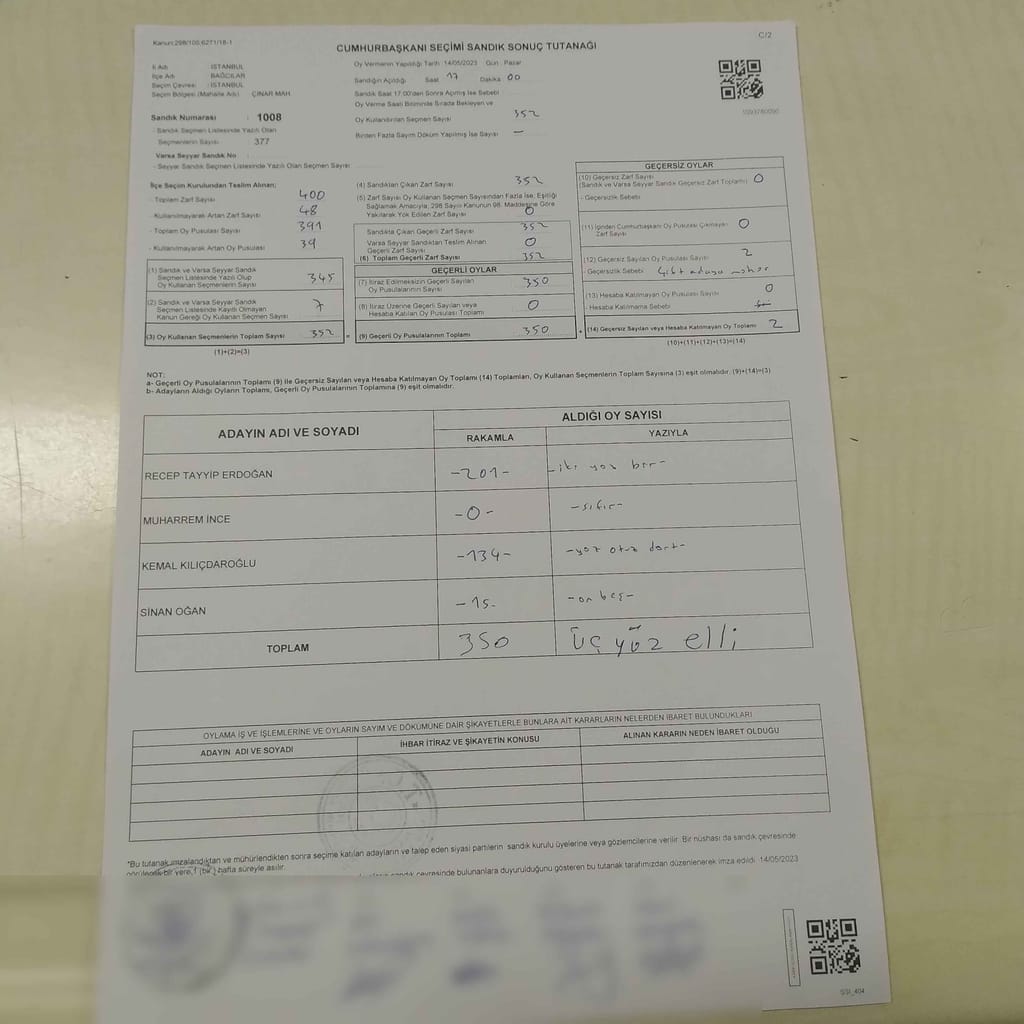 Kanun:298/105,6271/18-1
C/2
CUMHURBAŞKANI SEÇİMİ SANDIK SONUÇ TUTANAĞI
İl Adı : İSTANBUL
İlçe Adı : BAĞCILAR
Seçim Çevresi : İSTANBUL
Seçim Bölgesi (Mahalle Adı) : ÇINAR MAH.
Sandık Numarası : 1008
- Sandık Seçmen Listesinde Yazılı Olan
Seçmenlerin Sayısı : 377
Varsa Seyyar Sandık No :
- Seyyar Sandık Seçmen Listesinde Yazılı Olan Seçmen Sayısı
Oy Vermenin Yapıldığı Tarih : 14/05/2023 Gün : Pazar
Sandığın Açıldığı Saat 17 Dakika 00
Sandık Saat 17.00'den Sonra Açılmış İse Sebebi
Oy Verme Saati Bitiminde Sırada Bekleyen ve
Oy Kullandırılan Seçmen Sayısı 352
Birden Fazla Sayım Döküm Yapılmış İse Sayısı —
İlçe Seçim Kurulundan Teslim Alınan;
- Toplam Zarf Sayısı 400
- Kullanılmayarak Artan Zarf Sayısı 48
- Toplam Oy Pusulası Sayısı 391
- Kullanılmayarak Artan Oy Pusulası 39
(1) Sandık ve Varsa Seyyar Sandık
Seçmen Listesinde Yazılı Olup
Oy Kullanan Seçmenlerin Sayısı 345
(2) Sandık ve Varsa Seyyar Sandık
Seçmen Listesinde Kayıtlı Olmayan
Kanun Gereği Oy Kullanan Seçmen Sayısı 7
(3) Oy Kullanan Seçmenlerin Toplam Sayısı 352
(1)+(2)=(3)
(4) Sandıktan Çıkan Zarf Sayısı 352
(5) Zarf Sayısı Oy Kullanan Seçmen Sayısından Fazla İse, Eşitliği
Sağlamak Amacıyla, 298 Sayılı Kanunun 98. Maddesine Göre
Yakılarak Yok Edilen Zarf Sayısı 0
Sandıkta Çıkan Geçerli Zarf Sayısı 352
Varsa Seyyar Sandıktan Teslim Alınan
Geçerli Zarf Sayısı 0
(6) Toplam Geçerli Zarf Sayısı 352
GEÇERLİ OYLAR
(7) İtiraz Edilmeksizin Geçerli Sayılan
Oy Pusulalarının Sayısı 350
(8) İtiraz Üzerine Geçerli Sayılan veya
Hesaba Katılan Oy Pusulası Toplamı 0
= (9) Geçerli Oy Pusulalarının Toplamı 350
GEÇERSİZ OYLAR
(10) Geçersiz Zarf Sayısı
(Sandık ve Varsa Seyyar Sandık Geçersiz Zarf Toplamı) 0
- Geçersizlik Sebebi
(11) İçinden Cumhurbaşkanı Oy Pusulası Çıkmayan
Zarf Sayısı 0
(12) Geçersiz Sayılan Oy Pusulası Sayısı 2
- Geçersizlik Sebebi Çift adaya mühür
(13) Hesaba Katılmayan Oy Pusulası Sayısı 0
- Hesaba Katılmama Sebebi
+ (14) Geçersiz Sayılan veya Hesaba Katılmayan Oy Toplamı 2
(10)+(11)+(12)+(13)=(14)
NOT:
a- Geçerli Oy Pusulalarının Toplamı (9) ile Geçersiz Sayılan veya Hesaba Katılmayan Oy Toplamı (14) Toplamları, Oy Kullanan Seçmenlerin Toplam Sayısına (3) eşit olmalıdır. (9)+(14)=(3)
b- Adayların Aldığı Oyların Toplamı, Geçerli Oy Pusulalarının Toplamına (9) eşit olmalıdır.
ADAYIN ADI VE SOYADI
ALDIĞI OY SAYISI
RAKAMLA YAZIYLA
RECEP TAYYİP ERDOĞAN -201- -iki yüz bir-
MUHARREM İNCE -0- -sıfır-
KEMAL KILIÇDAROĞLU -134- -yüz otuz dört-
SİNAN OĞAN -15- -on beş-
TOPLAM 350 üç yüz elli
OYLAMA İŞ VE İŞLEMLERİNE VE OYLARIN SAYIM VE DÖKÜMÜNE DAİR ŞİKAYETLERLE BUNLARA AİT KARARLARIN NELERDEN İBARET BULUNDUKLARI
ADAYIN ADI VE SOYADI İHBAR İTİRAZ VE ŞİKAYETİN KONUSU ALINAN KARARIN NEDEN İBARET OLDUĞU
*Bu tutanak imzalandıktan ve mühürlendikten sonra seçime katılan adayların ve talep eden siyasi partilerin sandık kurulu üyelerine veya gözlemcilerine verilir. Bir nüshası da sandık çevresinde
görülecek bir yere, 1 (bir) hafta süreyle asılır.
sandık çevresinde bulunanlara duyurulduğunu gösteren bu tutanak tarafımızdan düzenlenerek imza edildi. 14/05/2023
SSI_404